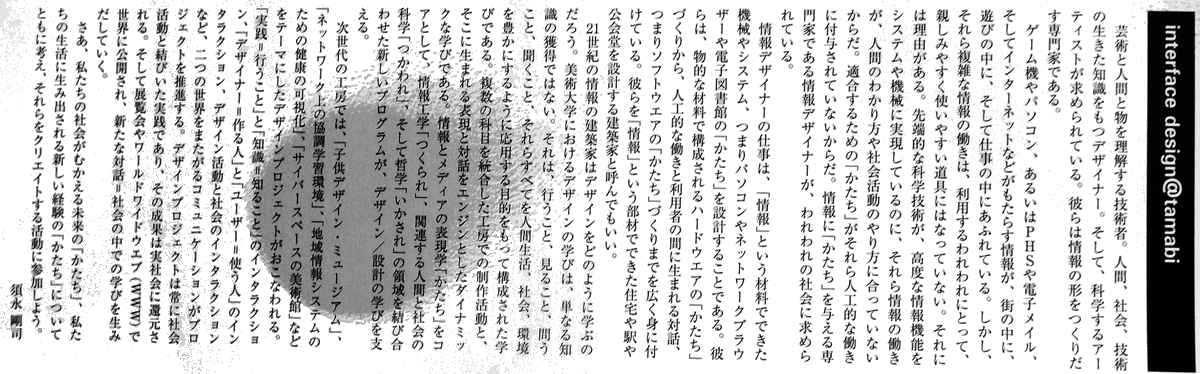 interface design@tamabi
芸術と人間と物を理解する技術者。人間、社会、技術
の生きた知識をもつデザイナー。そして、科学するアー
ティストが求められている。彼らは情報の形をつくりだ
す専門家である。
ゲーム機やパソコン、あるいはPHSや電子メイル、
そしてインターネットなどがもたらす情報が、街の中に、
遊びの中に、そして仕事の中にあふれている。しかし、
それら複雑な情報の働きは、利用するわれわれにとって、
親しみやすく使いやすい道具にはなっていない。それに
は理由がある。先端的な科学技術が、高度な情報機能を
システムや機械に実現しているのに、それら情報の働き
が、人間のわかり方や社会活動のやり方に合っていない
からだ。適合するための「かたち」がそれら人工的な働き
に付与されていないからだ。情報に「かたち」を与える専
門家である情報デザイナーが、われわれの社会に求めら
れている。
情報デザイナーの仕事は、「情報」という材料でできた
機械やシステム、つまりパソコンやネットワークブラウ
ザーや電子図書館の「かたち」を設計することである。彼
らは、物的な材料で構成されるハードウエアの「かたち」
づくりから、人工的な働きと利用者の間に生まれる対話、
つまりソフトウエアの「かたち」づくりまでを広く身に付
けている。彼らを「情報」という部材でできた住宅や駅や
公会堂を設計する建築家と呼んでもいい。
21世紀の情報の建築家はデザインをどのように学ぶの
だろう。美術大学におけるデザインの学びは、単なる知
識の獲得ではない。それは、行うこと、見ること、問う
こと、聞くこと、それらすべてを人間生活、社会、環境
を豊かにするように応用する目的をもって構成された学
びである。複数の科目を統合した工房での制作活動と、
そこに生まれる表現と対話をエンジンとしたダイナミッ
クな学びである。情報とメディアの表現学「かたち」をコ
アとして、情報工学「つくられ」、関連する人間と社会の
科学「つかわれ」、そして哲学「いかされ」の領域を結び合
わせた新しいプログラムが、デザイン/設計の学びを支
える。
次世代の工房では、「子供デザイン・ミュージアム」、
「ネットワーク上の協調学習環境」、「地域情報システムの
ための健康の可視化」、「サイバースペースの美術館」など
をテーマにしたデザインプロジェクトがおこなわれる。
「実践＝行うこと」と「知識＝知ること」のインタラクショ
ン、「デザイナー＝作る人」と「ユーザー＝使う人」のイン
タラクション、デザイン活動と社会のインタラクション
など、二つの世界をまたがるコミュニケーションがプロ
ジェクトを推進する。デザインプロジェクトは常に社会
活動と結びいた実践であり、その成果は実社会に還元さ
れる。そして展覧会やワールドワイドウエブ(WWW)で
世界に公開され、新たな対話＝社会の中での学びを生み
だしていく。
さあ、私たちの社会がむかえる未来の「かたち」、私た
ちの生活に生み出される新しい経験の「かたち」について
ともに考え、それらをクリエイトする活動に参加しよう。
須永 剛司